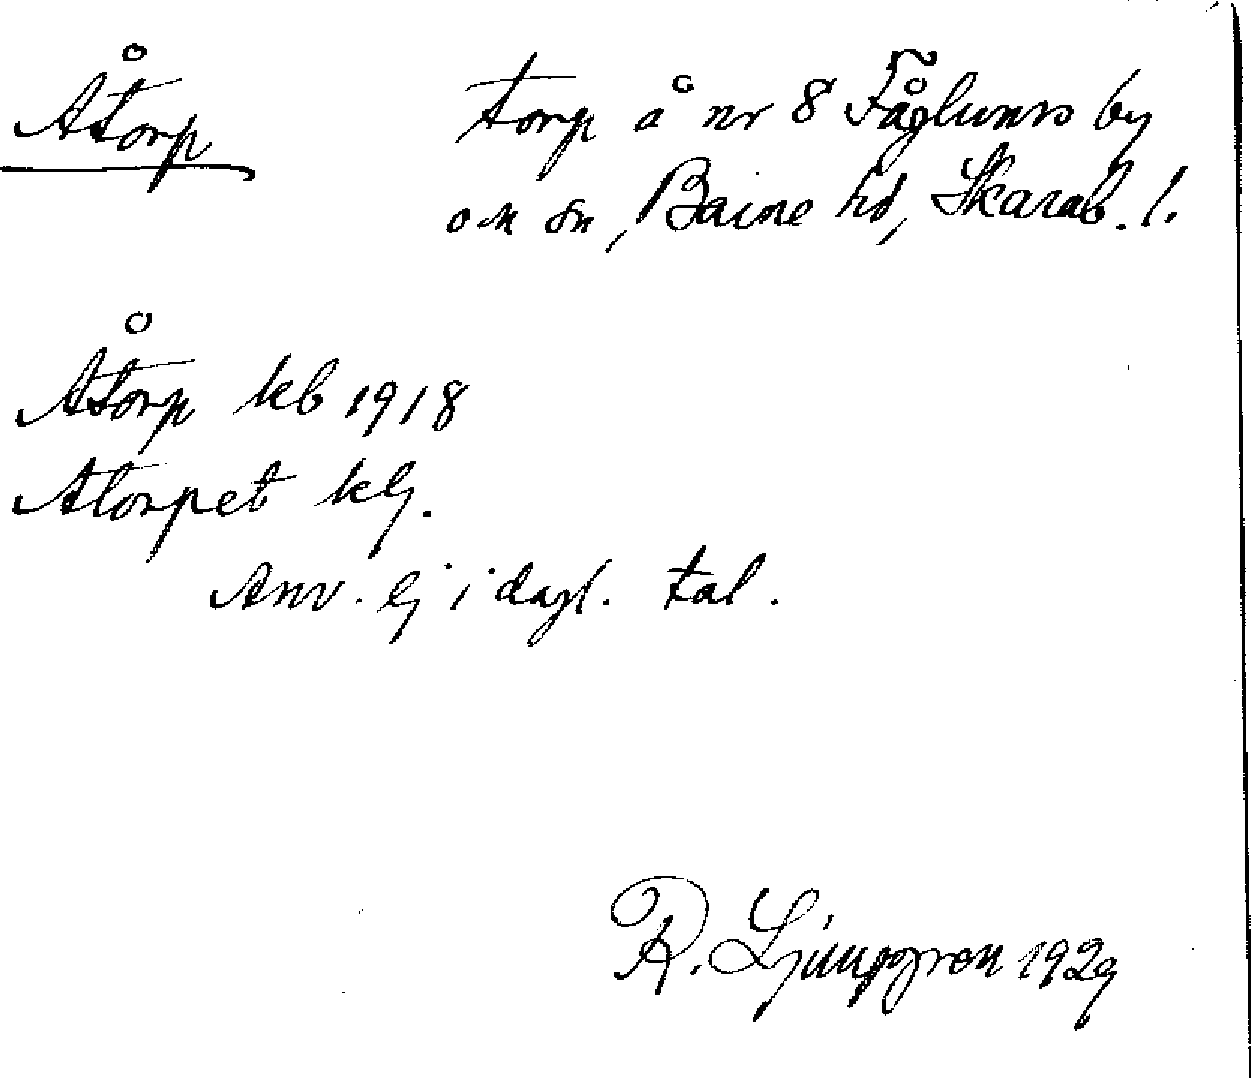 Åtorp torp å nr 8 Fåglums by
o sn, Barne hd, Skarab. l.
Åtorp kb 1918
Åtorpet klj.
Anv. ej i dagl. tal.
R. Ljunggren 1929